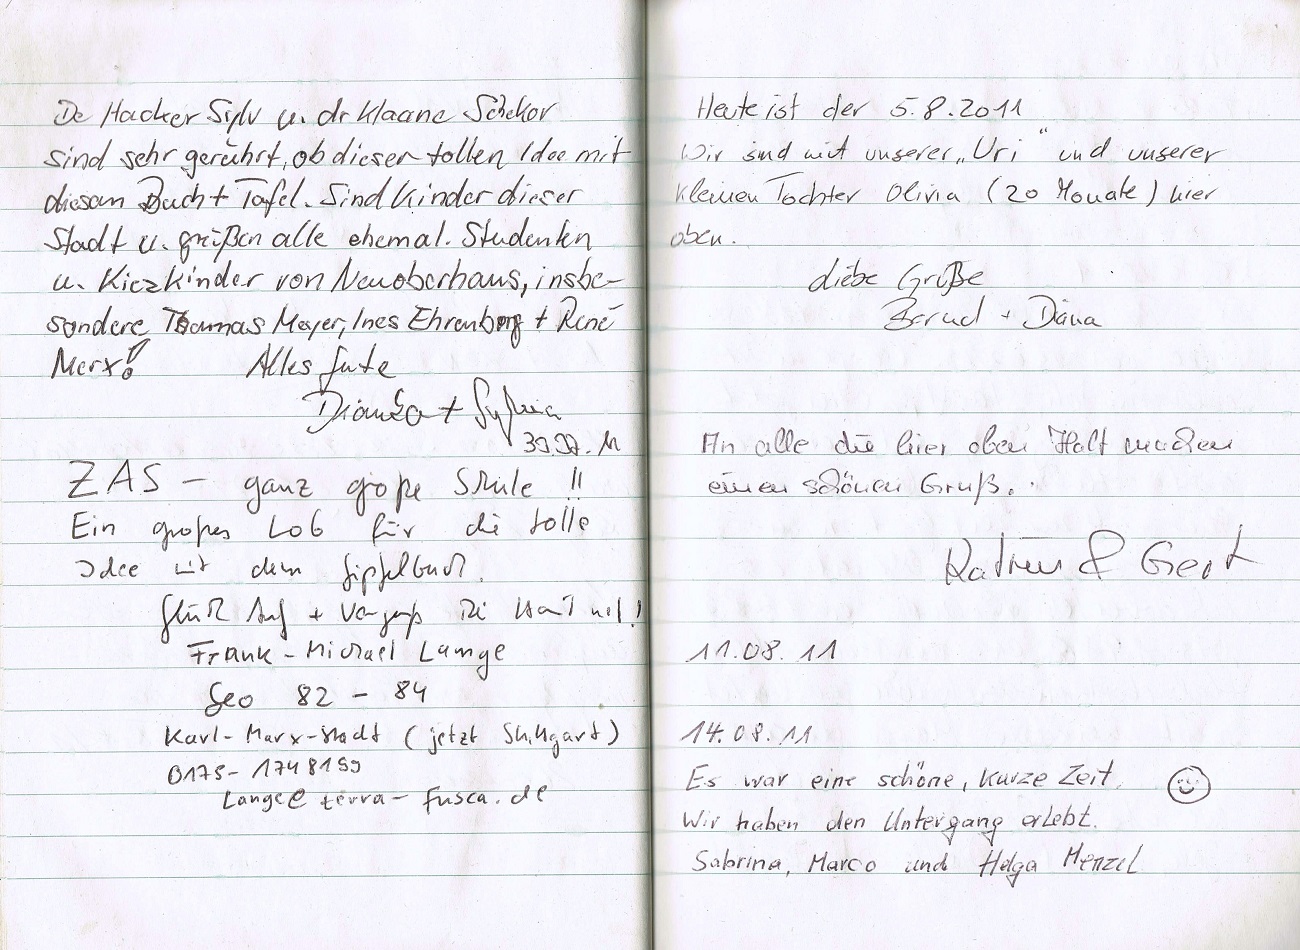 De Hacker Sylv u. dr Klaane Schekor
sind sehr gerührt, ob dieser tollen Idee mit
diesem Buch + Tafel. Sind Kinder dieser
Stadt u. grüßen alle ehemal. Studenten
u. Kiezkinder von Neuoberhaus, insbe-
sondere Thomas Meyer, Ines Ehrenberg + René
Merx!
Alles Gute
+ Sylvia
ZAS - ganz große Schule !!
Ein großes Lob für die tolle
Idee mit dem Gipfelbuch.
Glück Auf + die nit!
Frank-Michael Lange
Geo 82 - 84
Karl-Marx-Stadt (jetzt Stuttgart)
0175-1748159
Lange@terra-fusca.de
Heute ist der 5.8.2011
Wir sind mit unserer „Uri“ und unserer
kleinen Tochter Olivia (20 Monate) hier
oben.
Liebe Grüße
Bernd + Diana
An alle die hier oben Halt machen
einen schönen Gruß.
Katrin & Gert
11.08.11
14.08.11
Es war eine schöne, kurze Zeit.
Wir haben den Untergang erlebt.
Sabrina, Marco und Helga Menzel